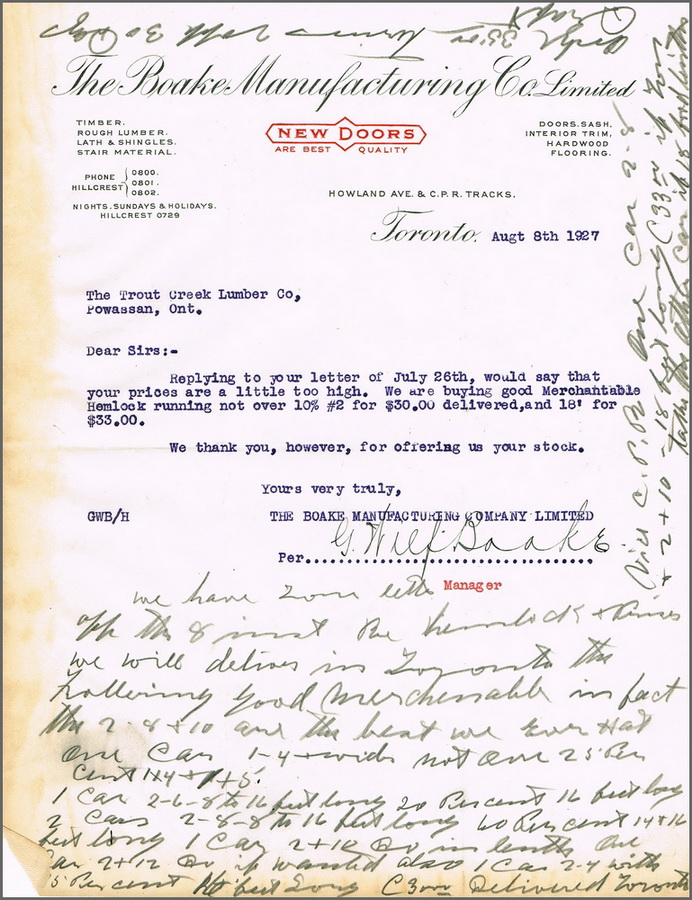 The Boake Manufacturing Co. Limited
TIMBER.
ROUGH LUMBER.
LATH & SHINGLES.
STAIR MATERIAL.
NEW DOORS
ARE BEST QUALITY
DOORS. SASH,
INTERIOR TRIM,
HARDWOOD
FLOORING.
PHONE HILLCREST
0800.
0801.
0802.
NIGHTS. SUNDAYS & HOLIDAYS.
HILLCREST 0729
HOWLAND AVE. & C.P.R. TRACKS.
Toronto. Augt 8th 1927
The Trout Creek Lumber Co,
Powassan, Ont.
Dear Sirs:-
Replying to your letter of July 26th, would say that
your prices are a little too high. We are buying good Merchantable
Hemlock running not over 10% #2 for $30.00 delivered,and 18' for
$33.00.
We thank you, however, for offering us your stock.
Yours very truly,
GWB/H
THE BOAKE MANUFACTURING COMPANY LIMITED
Per....................................
G. Wilf. Boake
Manager
we have your letter
of the 8 inst Re hemlock +
we will deliver in Toronto the
following good merchenable in fact
the 2-8 + 10 are the best we ever had
one Car 1-4 + wide not over 25 Per
Cent 1+4 + 1+5.
1 Car 2-6-8 to 16 feet long 20 Per cent 16 feet long
2 Cars 2-8-8 to 16 feet long 60 Per cent 14+16
feet long 1 Car 2+10 Do in lenth one
Car 2+12 Do if wanted also 1 Car 2-4 with
Per cent feet long Delivered Toronto
C.P.R one Car 2-8
+ 2+10-18 feet long if you
take the other Car